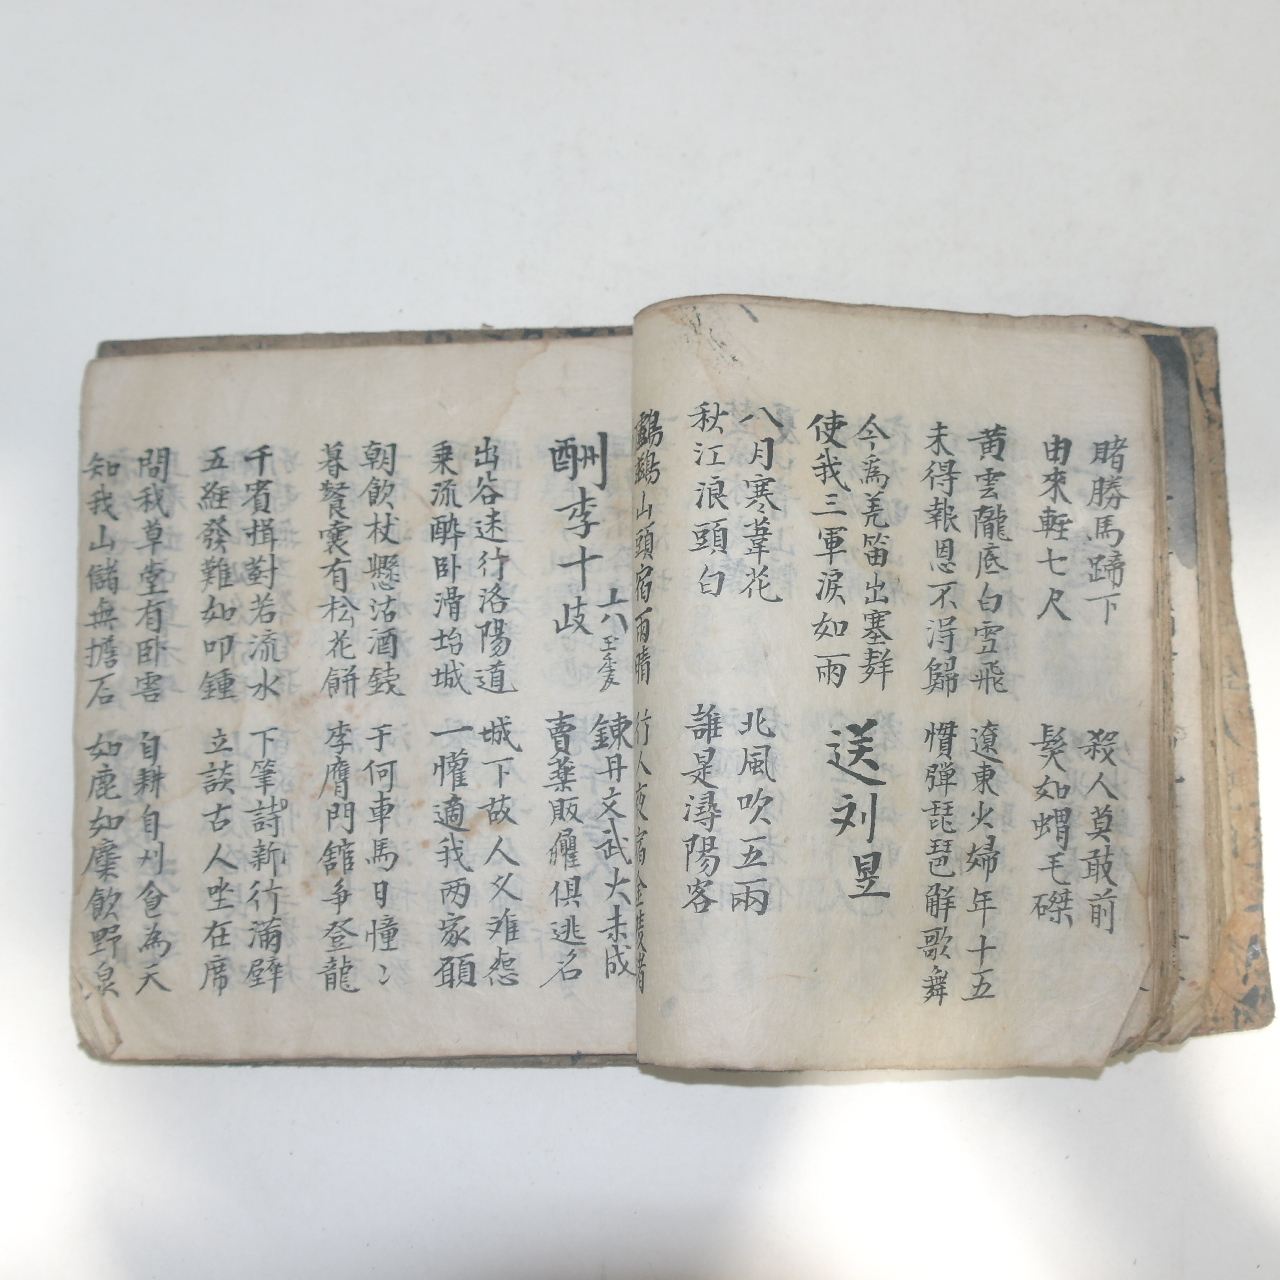 賭勝馬蹄下 殺人莫敢前
由來輊七尺 髮如蝟毛磔
黃雲隴底白雪飛 遼東火婦年十五
未得報恩不淂歸 慣彈琵琶觧歌舞
今爲羌笛出塞聲
使我三軍淚如雨
送刘昱
八月寒葦花 北風吹五兩
秋江浪頭白 誰是潯陽客
鸕鷀山頭宿雨晴 行人夜宿金陵渚
酬李十六歧
錬丹文武火未成
賣藥販
俱逃名
出谷迷行洛陽道 城下故人久难怨
乘流酔卧滑坮城 一懽適我两家願
朝飮杖懸沽酒錢 于何車馬日憧〻
暮餐囊有松花餅 李膺門舘爭登龍
千賓揖對若流水 下筆詩新行滿壁
五經發難如叩鍾 立談古人坐在席
問我草堂有卧
自耕自刈食為天
知我山儲無擔石 如鹿如麋飮野泉